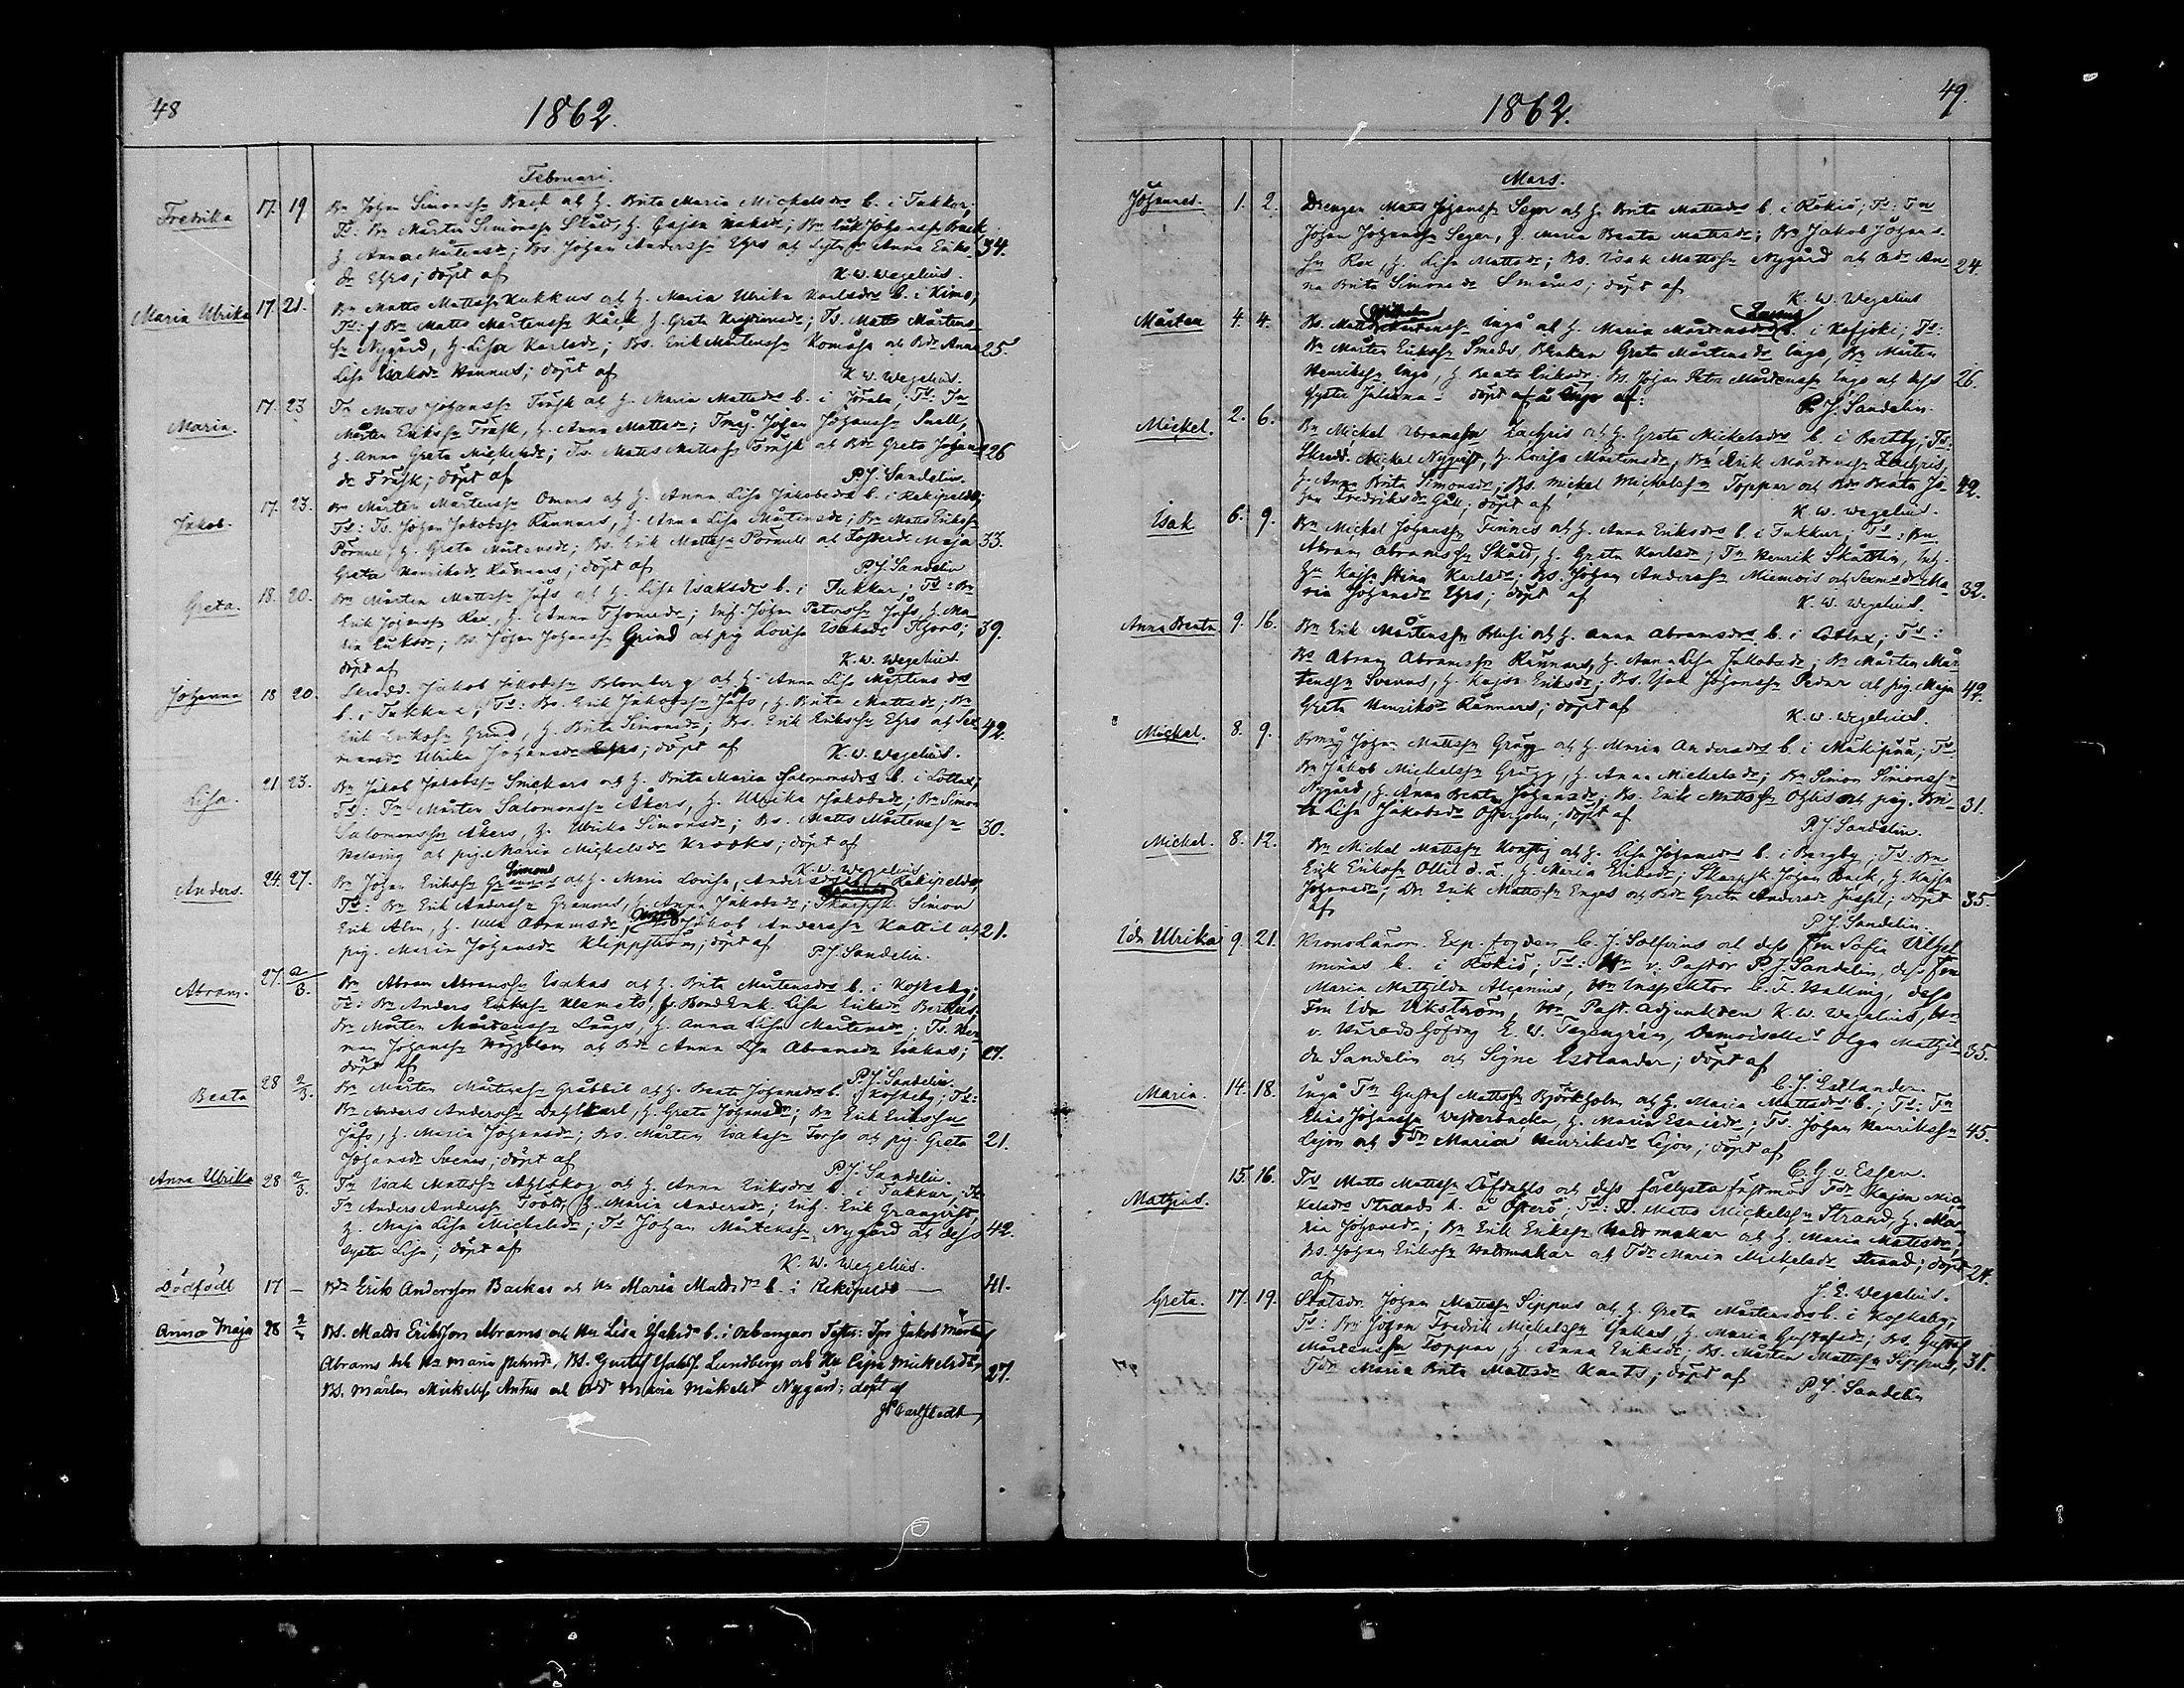 48
1862.
Februari.
Fredrika 17. 19 Bn Johan Simonss Back och h. Brita Maria Mickelsdr b. i Tukkor;
Ts: Bn Mårten Simonss Skåd, h. Cajsa Isaksdr; Bn Erik Johanss Back
h. Anna Mårtensdr; Bs. Johan Anderss Ehrs och Anna Eriks- 34.
dr Ehrs; döpt af K. W. Wegelius.
Maria Ulrika 17. 21. Bn Matts Mattss Kukkus och h. Maria Ulrika Karlsdr b. i Kimo;
Ts: Bn Matts Mårtenss Käck h. Greta; Ts. Matts Mårtens-
sn Nygård, h. Lisa Karlsdr; Bs. Erik Mårtenss Komåsa och Bdr Anna 25.
Lisa Isaksdr Hannus; döpt af K. W. Wegelius.
Maria. 17. 23 Tn Matts JohanssTräsk och h. Maria Mattsdr b. i; Ts: Tn
Mårten Erikss Träsk, h. Anna Mattsdr; Johan Johanss Snell,
h. Anna Greta Mickelsdr; Ts. Matts Mattss Träsk och Bdr Greta Johans- 26
dr Träsk; döpt af P. J. Sandelin.
Jakob. 17. 23. Bn Mårten Mårtenss Omars och h. Anna Lisa Jakobsdr b. i Rekipeldo;
Ts: Ts. Johan Jakobss Rannars, h. Anna Lisa Mårtensdr; Bn Matts Erikss
Pörnull, h. Greta Mårtensdr; Bs. Erik Mattss Pörnull och Fosterdr Maja 33.
Greta Henriksdr Rannars; döpt af P. J. Sandelin
Greta. 18. 20. Bn Mårten Mattss Jåfs och h. Lisa Isaksdr b. i Tukkur; Ts: Bn
Erik Johanss Rex, h. Anna Thomasdr; Inh. Johan Peterss Jåfs, h. Ma-
ria Eriksdr; Bs. Johan Johanss Grind och pig. Lovisa Isaksdr; 39.
döpt af K. W. Wegelius.
Johanna 18 20. Skrädd. Jakob Jakobss Blomberg och h. Anna Lisa Mårtensdr
b. i Tukkur; Ts: Bs. Erik Jakobss Jåfs, h. Brita Mattsdr; Bn
Erik Erikss Grind, h. Brita Simonsdr; Bs. Erik Erikss Ehrs och Sex- 42.
mansdr Ulrika Johansdr Ehrs; döpt af K. W. Wegelius.
Lisa. 21. 23. Bn Jakob Jakobss Smekars och h. Brita Maria Salomonsdr b. i Lotlax;
Ts: Tn Mårten Salomonss Åkers, h. Ulrika Jakobsdr; Bn Simon
Salomonss Åkers, h. Ulrika Simonsdr; Bs. Matts Mårtenssn 30.
Helsing och pig. Maria Mickelsdr Krooks; döpt af
K. W. Wegelius
Anders. 24. 27. Bn Johan Erikss Simons och h. Maria Lovisa, Andersdr Rekipeldo;
Ts: Bn Erik Anderss Grannas, h. Anna Jakobsdr; Skarpsk. Simon
Erik Alm, h. Ulla Abramsdr; Jakob Anderss Kattil och 21.
pig. Maria Johansdr Klippström; döpt af P. J. Sandelin.
Abram. 27. 2/3. Bn Abram Abramss Isakas och h. Brita Mårtensdr b. i Koskeby;
Ts: Bn Anders Erikss Klemets, Bond Enk. Lisa Eriksdr Berthus;
Bn Mårten Mårtenss Långs, h. Anna Lisa Mårtensdr; Ts. Her-
man Johanss Häggblom och Bdr Anna Lisa Abramsdr Isakas; 27.
döpt af P. J. Sandelin.
Beata 28 2/3. Bn Mårten Mårtenss Gråbbil och h. Beata Johansdr b. i Koskeby; Ts:
Bn Anders Anderss Dahlkarl, h. Greta Johansdr; Bn Erik Erikssn
Jåfs, h. Maria Johansdr; Bs. Mårten Isakss Forss och pig. Greta 21.
Johansdr Svenns; döpt af P. J. Sandelin.
Anna Ulrika 28 2/3. Tn Isak Mattss Ahlskog och h. Anna Eriksdr b. i Tukkur; Ts:
Tn Anders Anderss Tööts, h. Maria Andersdr; Inh. Erik Granqvist,
h. Maja Lisa Mickelsdr; Ts Johan Mårtenss Nygård och dess 42.
syster Lisa; döpt af K. W. Wegelius.
Dödfödt 17 — Bn Erik Andersson Backas och Hu Maria Matsdr b. i Rekipeldo — 41.
Anna Maja 28 2/3 Bs. Matts Eriksson Abrams och Hu Lisa Isaksdr b. i Testes: Tps Jakob Mårtens
Abrams och Hu Maria, Bs. Gustaf Isakss Lundbergs och Hu Cajsa Mickelsdr, 27.
Bs. Mårten Mickelss Antus och Bdr Maria Mickelsdr Nygård; döpt af
Carlstedt
49.
1862.
Mars.
Johannes. 1. 2. Drengen Matts Johanss Seger och h. Brita Mattsdr b. i Rökiö; Ts: Tn
Johan Johanss Seger, h. Maria Beata Mattsdr; Bn Jakob Johans-
sn Rex, h. Lisa Mattsdr; Bs. Isak Mattss Nygård och Bdr An- 24.
na Brita Simonsdr Småus; döpt af K. W. Wegelius
Mårten 4. 4. Bs. Matts Mårtenss Ingo och h. Maria Mårtensdr b. i Kafjoki; Ts:
Bn Mårten Erikss Smeds, B.Enkan Greta Mårtensdr Ingo, Bn Mårten
Henrikss Ingo, h. Beata Eriksdr; Bs. Johan Petter Mårtenss Ingo och dess 26.
syster Juliana: döpt af P. J. Sandelin.
Mickel. 2. 6. Bn Mickel Abramssn Zachris och h. Greta Mickelsdr b. i Bertby; Ts:
Skrädd. Mickel Nyqvist, h. Lovisa Mårtensdr; Bn Erik Mårtenss Zachris,
h. Anna Brita Simonsdr; Bs. Mickel Mickelss Toppar och Bdr Beata Jo- 42.
han Fredriksdr Gäll; döpt af K. W. Wegelius.
Isak 6. 9. Bn Mickel Johanss Finnes och h. Anna Eriksdr b. i Tukkur; Ts: Bn
Abram Abramss Skåd, h. Greta Karlsdr; Tn Henrik Skåttlin, h.
Kajsa Stina Karlsdr; Bs. Johan Anderss Miemois och Sexmsdr Ma- 32.
ria Johansdr Ehrs; döpt af K. W. Wegelius.
Anna Beata 9. 16. Bn Erik Mårtenss Blusi och h. Anna Abramsdr b. i Lotlax; Ts:
Bs Abram Abramss Rannars, h. Anna Lisa Jakobsdr; Bn Mårten Mår-
tenss Svenns, h. Kajsa Eriksdr; Bs. Isak Johanss Peder och pig. Maja 42.
Greta Henriksdr Rannars; döpt af K. W. Wegelius.
Mickel. 8. 9. Johan Mattss Grägg och h. Maria Andersdr b. i Mäkipää; Ts:
Bn Jakob Mickelss Grägg, h. Anna Mickelsdr; Bn Simon Simonss
Nygård, h. Anna Beata Johansdr; Bs. Erik Mattss Ohlis och pig. Bri- 31.
ta Lisa Jakobsdr Österholm; döpt af P. J. Sandelin.
Mickel. 8. 12. Bn Mickel Mattss och h. Lisa Johansdr b. i Bergby; Ts: Bn
Erik Erikss Ollil d.ä., h. Maria Eriksdr; Skarpsk. Johan Back, h. Kajsa
Johansdr; Dr. Erik Mattss Enges och Bdr Greta Andersdr Jussil; döpt 35.
af P. J. Sandelin.
Ida Ulrika 9. 21. KronoLänsm. Exp. fogden C. J. Solfvins och dess Fru Sofia Vilhel-
minas b. i Rökiö; Ts: Hr v. Pastor P. J. Sandelin, dess Fru
Maria Mathilda Alcenius, Hr Inspektor C. F. Halling, dess
Fru Ida Vikström, Hr Past. Adjunkten K. W. Wegelius, Hr
v. HäradsHöfdng E. W. Tegengrén, Demoiselle Olga Mathil- 35.
da Sandelin och Signe Estlander; döpt af
C. J. Estlander.
Maria. 14. 18. Ingå Tn Gustaf Mattss Björkholm och h. Maria Mattsdr b.; Ts: Tn
Elias Johanss Vesterbacka, h. Maria Esaiedr; Ts. Johan Henrikss 45.
Lejon och Tdr Maria Henriksdr Lejon; döpt af
C. G. v. Essen.
Mathias. 15. 16. Ts Matts Mattss Löfdahls och dess förlofsta fästmö Tdr Kajsa Mic-
kelsdr Strands b. å Österö; Ts: Ts. Matts Mickelss Strand, h. Ma-
ria Johansdr; Bn Erik Erikss Vadsmakar och h. Maria Mattsdr;
Bs. Johan Erikss Vadsmakar och Tdr Maria Mickelsdr Strand; döpt 24.
af J. E. Wegelius.
Greta. 17. 19. Johan Mattss Sippus och h. Greta Mårtensdr b. i Koskeby;
Ts: Bn Johan Fredrik Mickelss Isakas, h. Maria Gustafsdr; Bs. Gustaf
Mårtenss Toppar, h. Anna Eriksdr; Bs. Mårten Mattss Sippus, 31.
Tdr Maria Brita Mattsdr Knuts; döpt af
P. J. Sandelin